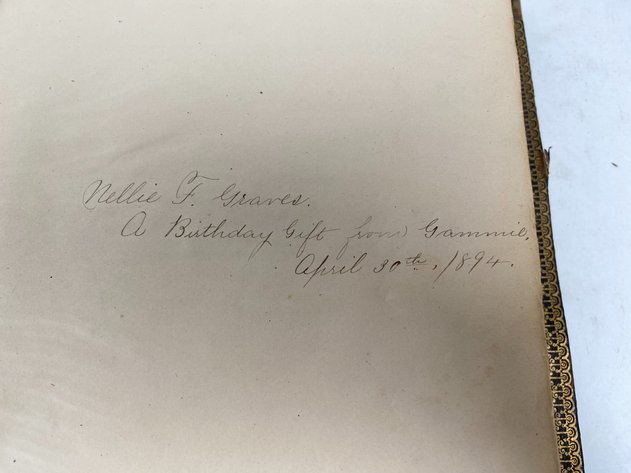 Nellie F. Graves.
A Birthday Gift from Gammie,
April 30th, 1894.